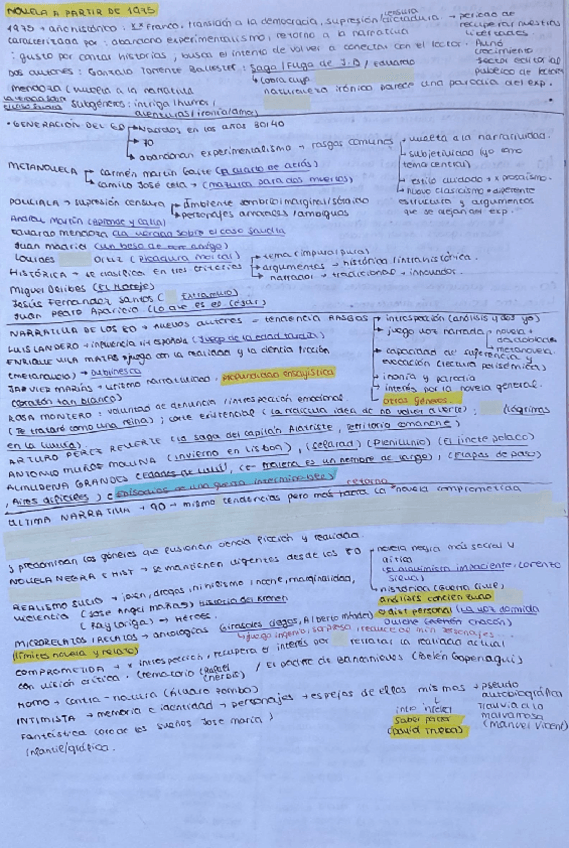 NOVELA A PARTIR DE 1975
1975 → año histórico. Xª Franco, transición a la democracia, supresión censura dictadura → periodo de recuperar nuestras libertades
caracterizada por: abandono experimentalismo, retorno a la narrativa
: gusto por contar historias, busca el intento de volver a conectar con el lector. Aunó crecimiento sector editorial público de lectores
Dos autores: Gonzalo Torrente Ballester: Saga / Fuga de J.B / Eduardo
Mendoza (vuelta a la narrativa
La verdad sobre el caso Savolta
naturaleza irónica parece una parodia del exp.
Subgéneros: intriga / humor / aventuras / ironía / amor
• GENERACIÓN DEL
nacidos en los años 30/40
70
abandonan experimentalismo → rasgos comunes
vuelta a la narratividad.
subjetividad (yo como tema central)
estilo cuidado + x prosaísmo.
nuevo clasicismo → diferente estructura y argumentos que se alejan del exp.
METANOVELA
Carmen Martín Gaite (El cuarto de atrás)
Camilo José Cela → (Mazurca para dos muertos)
POLICIACA → supresión censura
ambiente sombrío/marginal/sórdido
personajes amorales/ambiguos
Andreu Martín (Aprende y calla)
Eduardo Mendoza (La verdad sobre el caso Savolta
Juan Madrid (un beso de amigo)
Lourdes Ortiz (Picadura mortal)
HISTÓRICA → se clasifica en tres criterios
tema (impura/pura)
argumentos → histórica/intrahistórica.
narrador → tradicional → innovador.
Miguel Delibes (El Hereje)
Jesús Fernández Santos (Extramuros)
Juan Pedro Aparicio (Lo que es del César)
NARRATIVA DE LOS 80 → nuevos autores → tendencia RASGOS
introspección (análisis y del yo)
juego voz narrada → novela + autobiografía metanovela.
capacidad de sugerencia y evocación (lectura polisémica)
ironía y parodia
interés por la novela general.
otros géneros.
LUIS LANDERO → influencia lit española (Juegos de la edad tardía)
ENRIQUE VILA MATAS → juega con la realidad y la ciencia ficción
(metaliteratura) → Dublinesca
JAVIER MARÍAS → ritmo narratividad + profundidad ensayística
(Corazón tan blanco)
ROSA MONTERO: voluntad de denuncia / introspección emocional.
(Te trataré como una reina): corte existencial (La ridícula idea de no volver a verte): (lágrimas
en la lluvia).
ARTURO PÉREZ REVERTE (La saga del capitán Alatriste, Territorio comanche)
ANTONIO MUÑOZ MOLINA (Invierno en Lisboa), (Sefarad) (Plenilunio) (El jinete polaco)
ALMUDENA GRANDES (Edades de Lulú), (Malena es un nombre de tango), (Estaciones de paso)
, Aires difíciles) (Episodios de una guerra interminable)
ÚLTIMA NARRATIVA → 90 → mismo tendencias pero más hacia la "novela comprometida
retorno
predominan los géneros que fusionan ciencia ficción y realidad.
NOVELA NEGRA E HIST → se mantienen vigentes desde los 80
novela negra más social y crítica
(El alquimista impaciente, Lorenzo Silva)
histórica (Guerra Civil)
análisis concienzudo
+ dist personal (La voz dormida
Dulce Chacón)
REALISMO SUCIO → joven, drogas, nihilismo, noche, marginalidad,
violencia (José Ángel Mañas) Historias del Kronen
(Ray Loriga) → Héroes.
MICRORELATOS / RELATOS → antologías (Girasoles ciegos, Alberto Méndez)
(límites novela y relato)
juego ingenio, sorpresa, reducción mín personajes.
COMPROMETIDA → x introspección, recupera el interés por retratar la realidad actual
con visión crítica. Crematorio (Rafael Chirbes) / El padre de Blancanieves (Belén Gopegui)
HOMO → contra-natura (Álvaro Pombo)
INTIMISTA → memoria e identidad → personajes → espejos de ellos mismos + pseudo autobiográfica
Tranvía a la Malvarrosa (Manuel Vicent)
Saber perder (David Trueba)
Fantástica (Corazón de los sueños José María)
Infantil/gráfica.